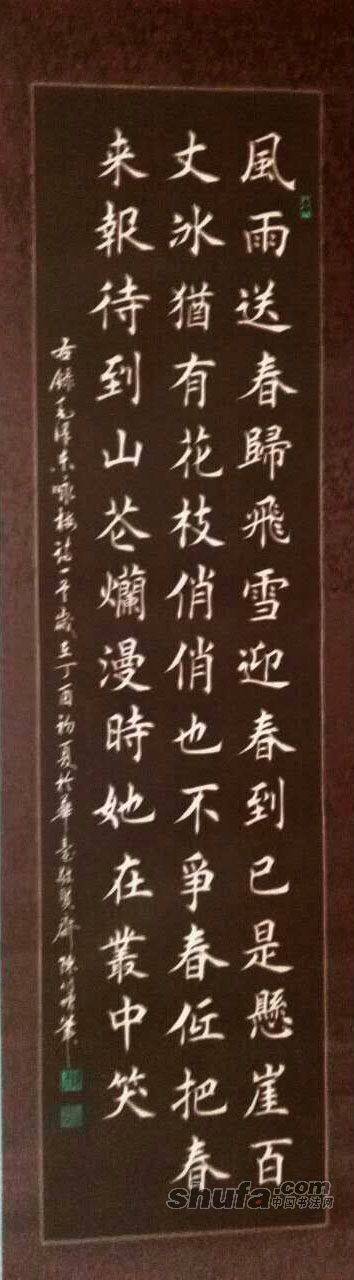 風雨送春歸飛雪迎春到已是懸崖百
丈冰猶有花枝俏俏也不爭春仾把春
来報待到山花爛漫時她在叢中笑
右錄毛澤東咏梅詩一首歲在丁酉初夏於華
shufa.com
中国书法网